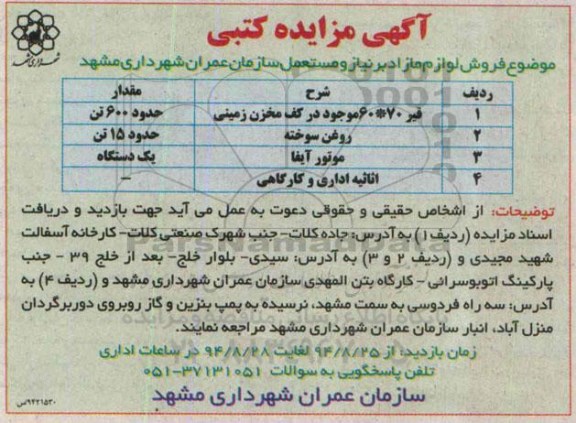 آگهی مزایده کتبی
شهرداری مشهد
موضوع فروش لوازم مازاد بر نیاز و مستعمل سازمان عمران شهرداری مشهد
ردیف شرح مقدار
۱ قیر ۷۰*۶۰ موجود در کف مخزن زمینی حدود ۶۰۰ تن
۲ روغن سوخته حدود ۱۵ تن
۳ موتور آیفا یک دستگاه
۴ اثاثیه اداری و کارگاهی –
توضیحات: از اشخاص حقیقی و حقوقی دعوت به عمل می آید جهت بازدید و دریافت
اسناد مزایده (ردیف ۱) به آدرس: جاده کلات- جنب شهرک صنعتی کلات- کارخانه آسفالت
شهید مجیدی و (ردیف ۲ و ۳) به آدرس: سیدی- بلوار خلج- بعد از خلج ۳۹ - جنب
پارکینگ اتوبوسرانی - کارگاه بتن المهدی سازمان عمران شهرداری مشهد و (ردیف ۴) به
آدرس: سه راه فردوسی به سمت مشهد، نرسیده به پمپ بنزین و گاز روبروی دوربرگردان
منزل آباد، انبار سازمان عمران شهرداری مشهد مراجعه نمایند.
زمان بازدید: از ۹۴/۸/۲۵ لغایت ۹۴/۸/۲۸ در ساعات اداری
تلفن پاسخگویی به سوالات ۳۷۱۳۱۰۵۱-۰۵۱
سازمان عمران شهرداری مشهد
۹۴۲۱۵۳۰/ص
ParsNamadData